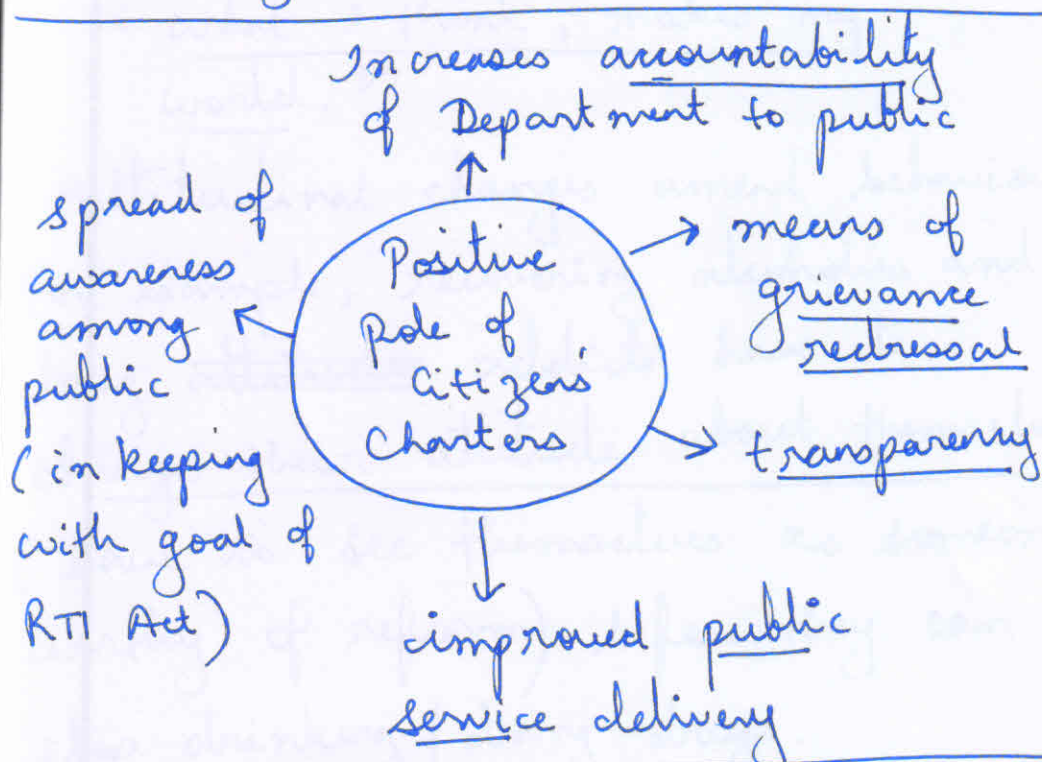 Increases accountability
of Department to public
spread of
awareness
among
public
(in keeping
with goal of
RTI Act)
Positive
Role of
Citizens'
Charters
means of
grievance
redressal
transparency
improved public
service delivery